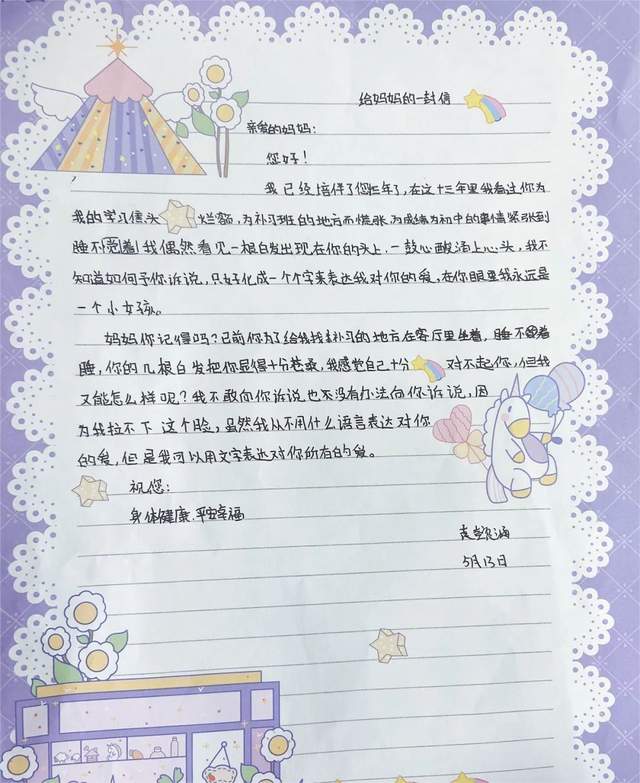 给妈妈的一封信
亲爱的妈妈：
您好！
我已经陪伴了您十三年了，在这十三年里我看过你为
我的学习焦头烂额，为补习班的地方而慌张为成绩为初中的事情紧张到
睡不着！我偶然看见一根白发出现在你的头上，一鼓心酸涌上心头，我不
知道如何予你诉说，只好化成一个个字来表达我对你的爱，在你眼里我永远是
一个小女孩。
妈妈你记得吗？已前你为了给我找补习的地方在客厅里坐着，睡不着
睡，你的几根白发把你显得十分苍桑，我感觉自己十分对不起你，但我
又能怎么样呢？我不敢向你诉说也不没有办法向你诉说，因
为我拉不下这个脸，虽然我从不用什么语言表达对你
的爱，但是我可以用文字表达对你所有的爱。
祝您：
身体健康.平安幸福
5月13日